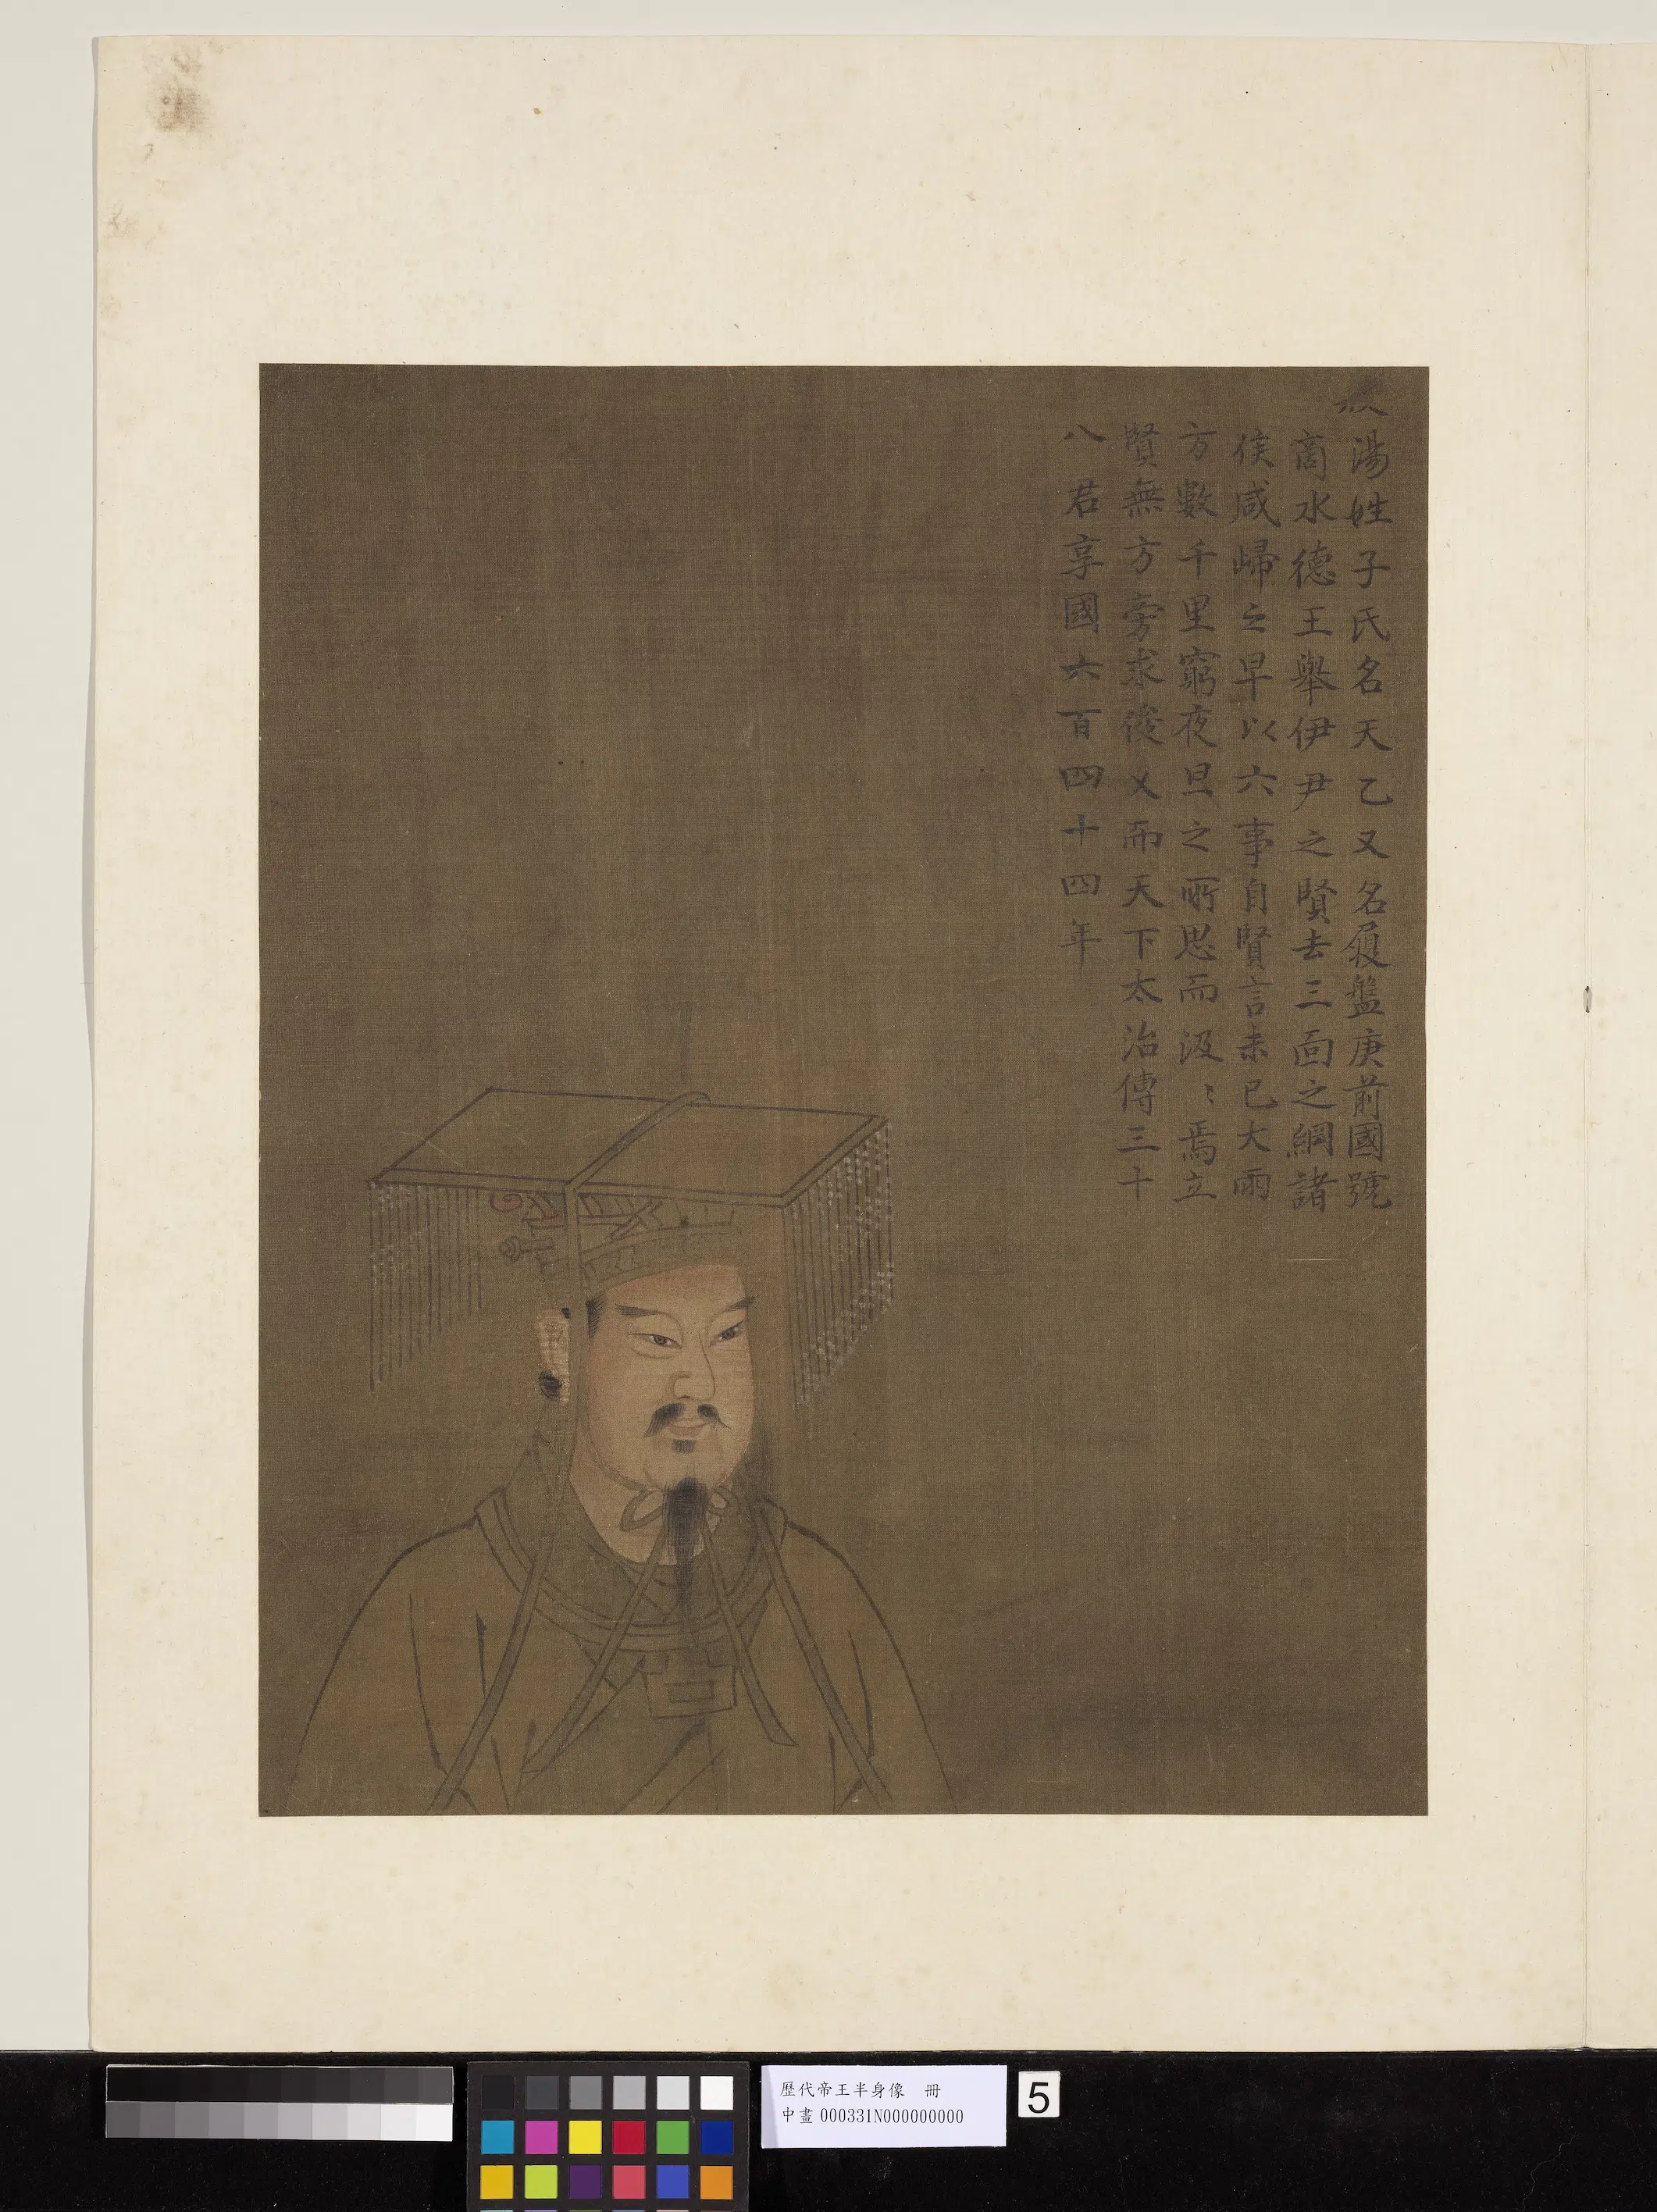 湯姓子氏名天乙又名履盤庚前國號
商水德王舉伊尹之賢去三面之網諸
侯咸歸之旱以六事自責言未已大雨
方數千里窮夜旦之所思而汲〻焉立
賢無方旁求俊乂而天下太治傳三十
八君享國六百四十四年
歷代帝王半身像 冊
中畫 000331N000000000
5